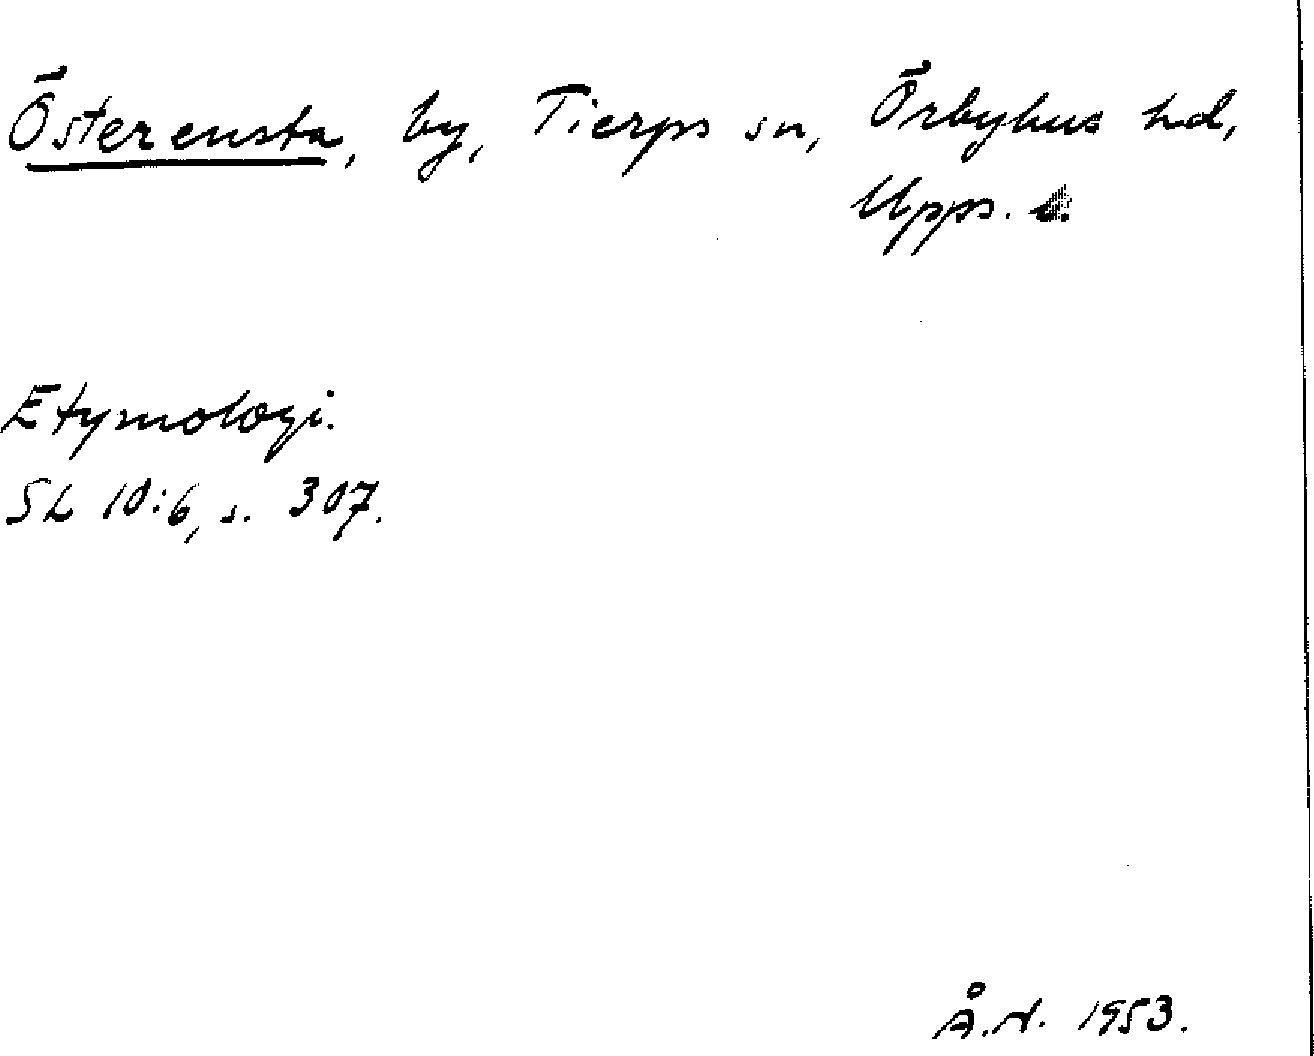 Österensta, by, Tierps sn, Örbyhus hd,
Upps. l.
Etymologi.
SL 10:6, s. 307.
Å.N. 1953.